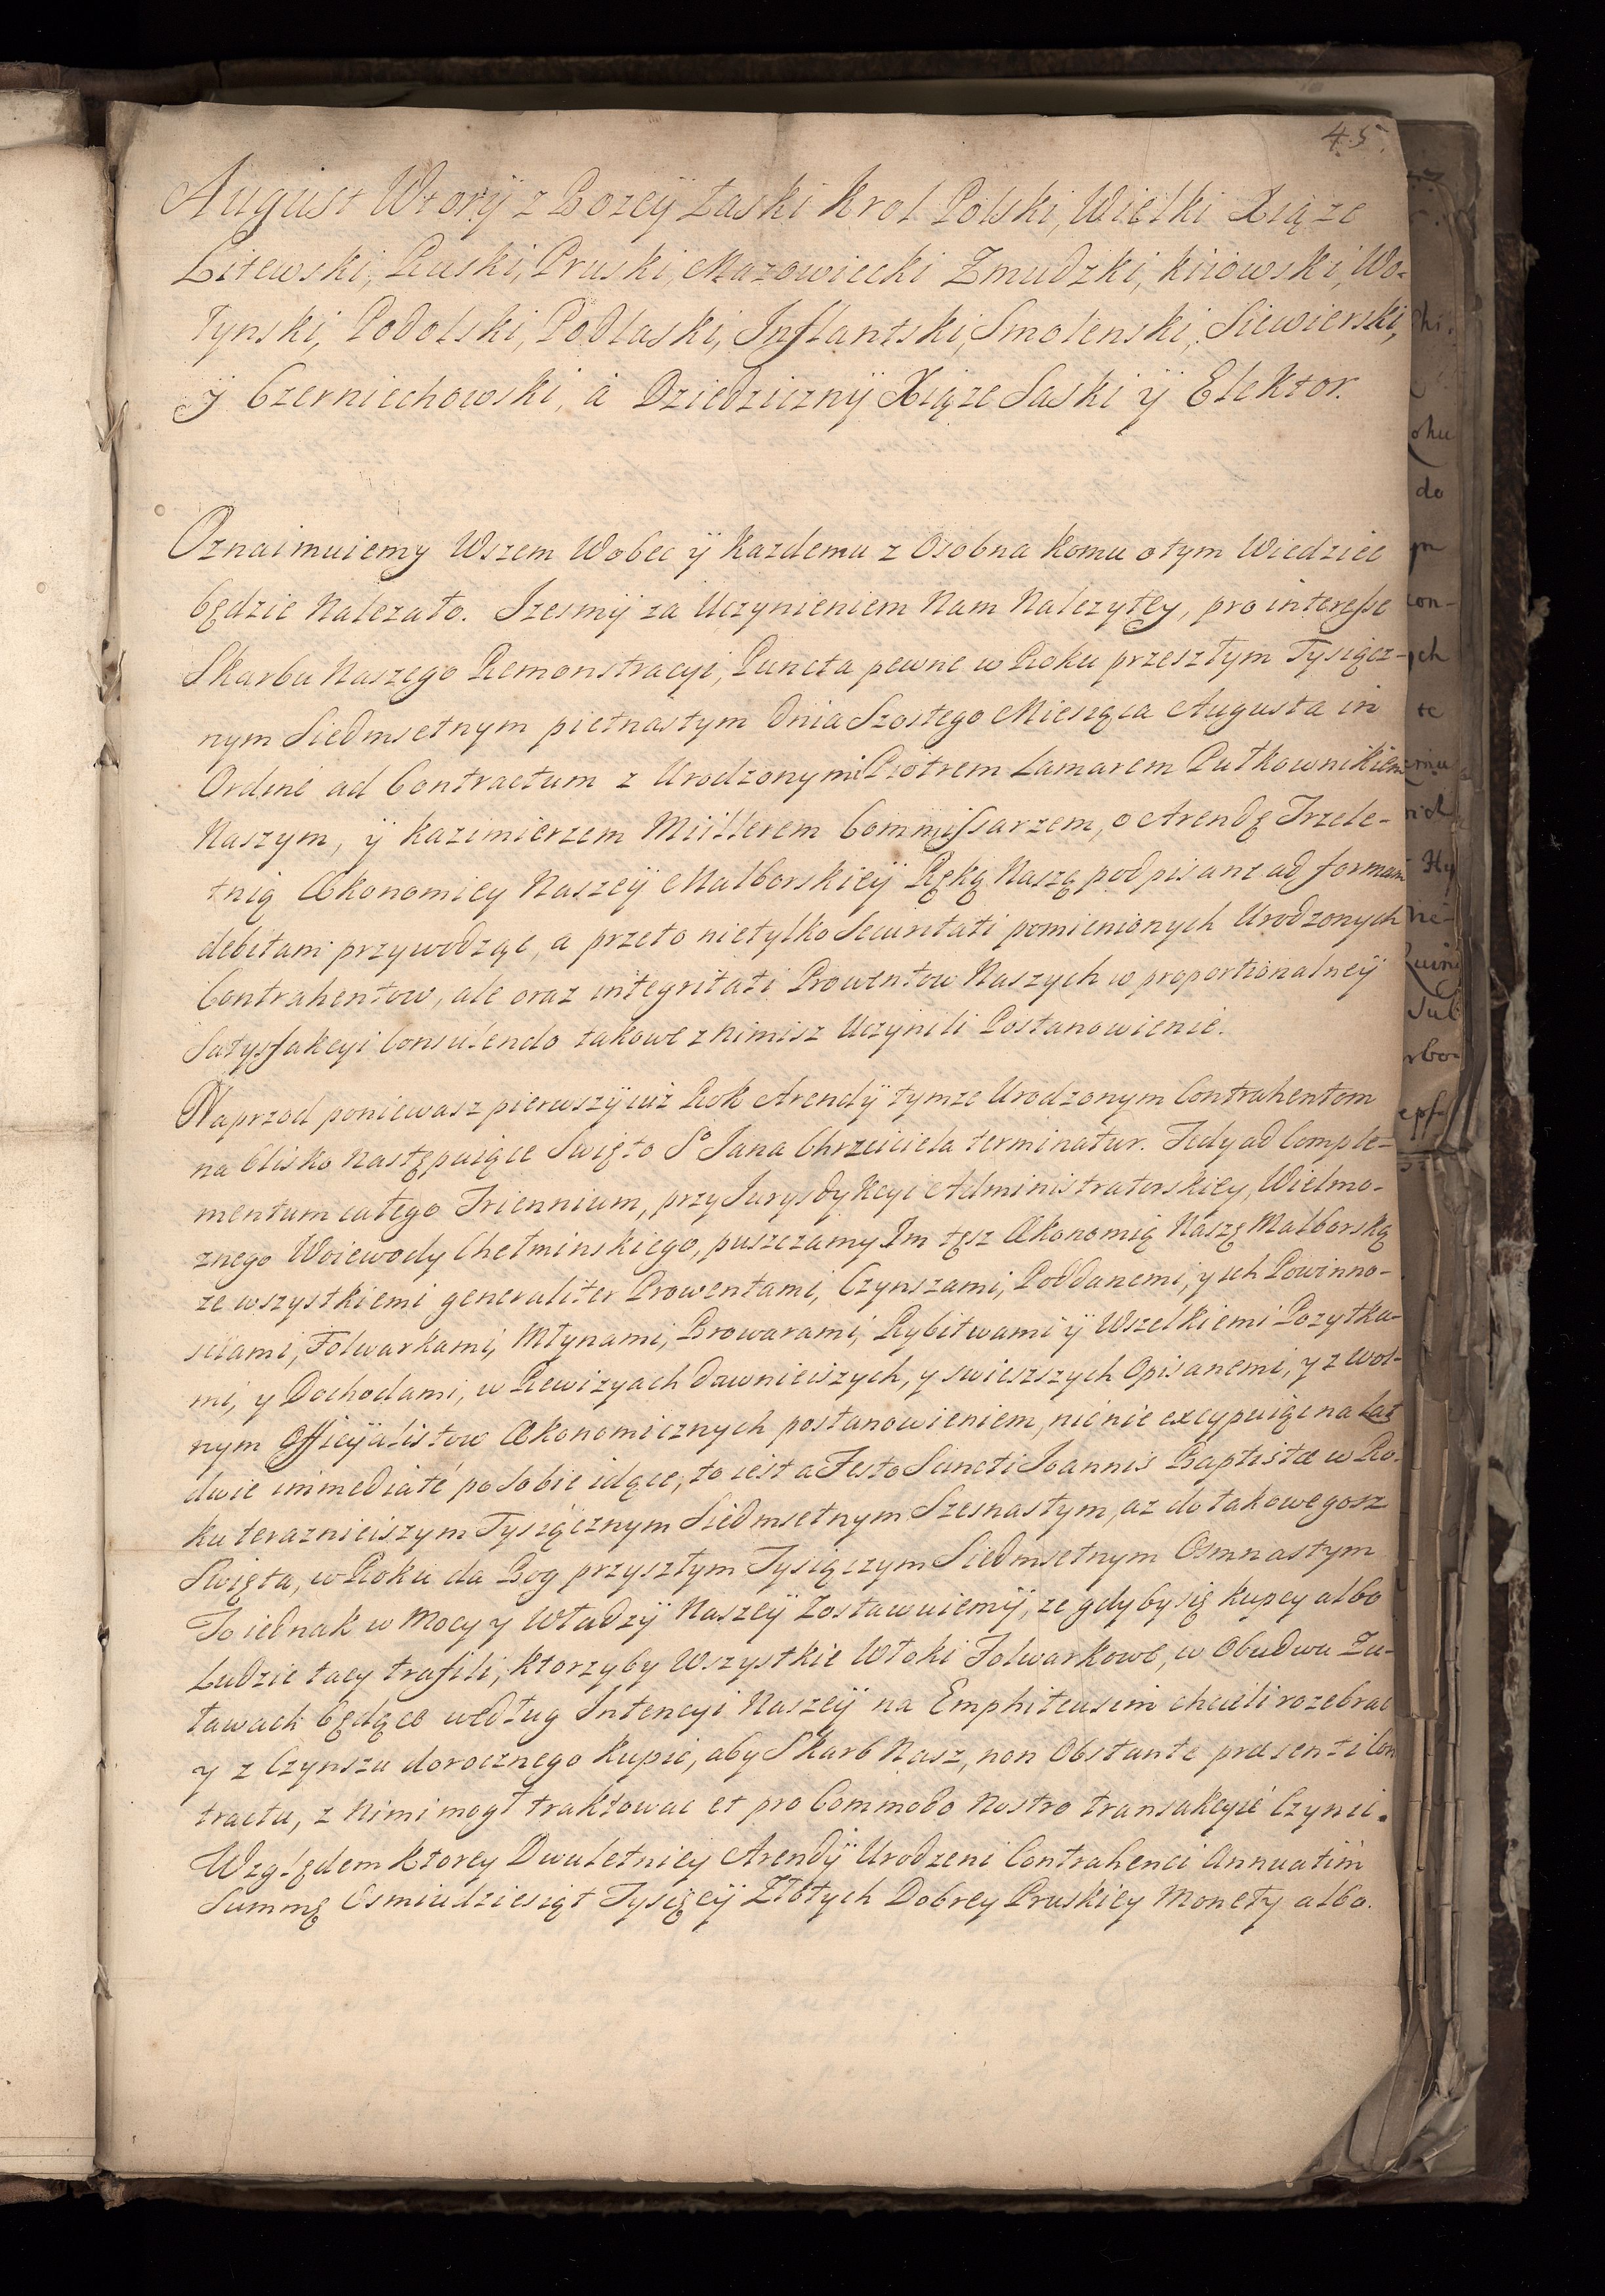 45.
August Wtorÿ z Bozeÿ Łaski Krol Polski, Wielki Xiąze
Litewski, Ruski, Pruski, Mazowiecki Zmudzki, kiiowski, Wo-
łynski, Podolski, Podlaski, Inflantski, Smolenski, Siewierski,
ÿ Czerniechowski, á Dziedzicznÿ Xiąze Saski ÿ Elektor.
Oznaimuiemy Wszem Wobec ÿ kazdemu z Osobna komu otym Wiedziec
będzie Nalezało. Izesmÿ za Uczynieniem Nam Nalezytey, pro interesse
Skarbu Naszego Remonstracyi, Puncta pewne w Roku przeszłym Tysiącz-
nym Siedmsetnym pietnastym Dnia Szostego Miesiąca Augusta in
Ordine ad Contractum z Urodzonymi Piotrem Lamarem Pułkownikiem
Naszym, ÿ Kazimierzem Müllerem Commissarzem, o Arendę Trzele-
tnią Œkonomiey Naszeÿ Malborskieÿ Ręką Naszą podpisane ad formam
debitam przywodząc, a przeto nietylko Securitati pomienionych Urodzonych
Contrahentow, ale oraz integritati Prowentow Naszych w proportionalneÿ
Satysfakcyi Consulendo takowe z nimisz Uczynili Postanowienie.
Naprzod poniewasz pierwszÿ iuż Rok Arendÿ tymze Urodzonym Contrahentom
na blisko następuiące Swięto So Jana Chrzciciela terminatur. Tedy ad Comple-
mentum całego Triennium, przy Jurysdykcyi Administratorskiey, Wielmo-
znego Woiewody Chełminskiego, puszczamy Im tęsz Œkonomią Naszę Malborską
ze wszystkiemi generaliter Prowentami, Czynszami, Poddanemi, y ich Powinno-
sciami, Folwarkami, Młynami, Browarami, Rybitwami ÿ Wszelkiemi Pozytka-
mi, y Dochodami, w Rewizyach dawnieiszych, y swieszszych Opisanemi, y z wol-
nym Officÿalistow Œkonomicznych postanowieniem, nic nie excypuiąc na Lat
dwie immediaté po sobie idące, to iest a Festo Sancti Joannis Baptistæ w Ro-
ku teraznieiszym Tysiącznym Siedmsetnym Szesnastym, az do takowegosz
Swięta, w Roku da Bog przyszłym Tysiączym Siedmsetnym Osmnastym
To iednak w Mocy y Władzÿ Naszeÿ Zostawuiemÿ, ze gdyby się kupcy albo
Ludzie tacy trafili, ktorzyby Wszystkie Włoki Folwarkowe, w Obudwu Zu-
ławach będące według Intencyi Naszeÿ na Emphiteusim chcieli rozebrac
y z Czynszu dorocznego kupic, aby Skarb Nasz, non Obstante præsenti Con
tractu, z Nimi mogł traktowac et pro Commodo Nostro transakcyie Czynic.
Względem ktorey Dwuletniey Arendÿ Urodzeni Contrahenci Annuatim
Summę Osmiudziesiąt Tysięcÿ Złotych Dobrey Pruskiey Monety albo.